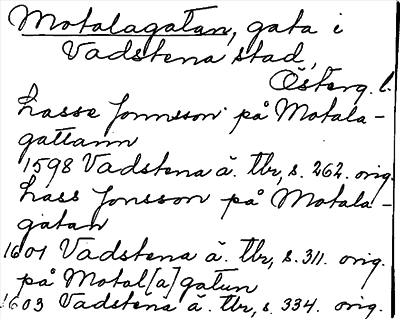 Motalagatan, gata i
Vadstena stad,
Österg. l.
Lasse Jonnsson på Motala-
gattann
1598 Vadstena ä. tbr, s. 262. orig.
Lass Jonsson på Motala-
gatan
1601 Vadstena ä. tbr, s. 311. orig.
på Motal[a]gatun
1603 Vadstena ä. tbr, s. 334. orig.